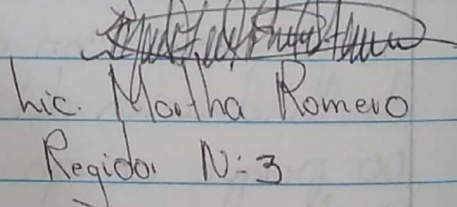 Lic. Martha Romero
Regidor N: 3